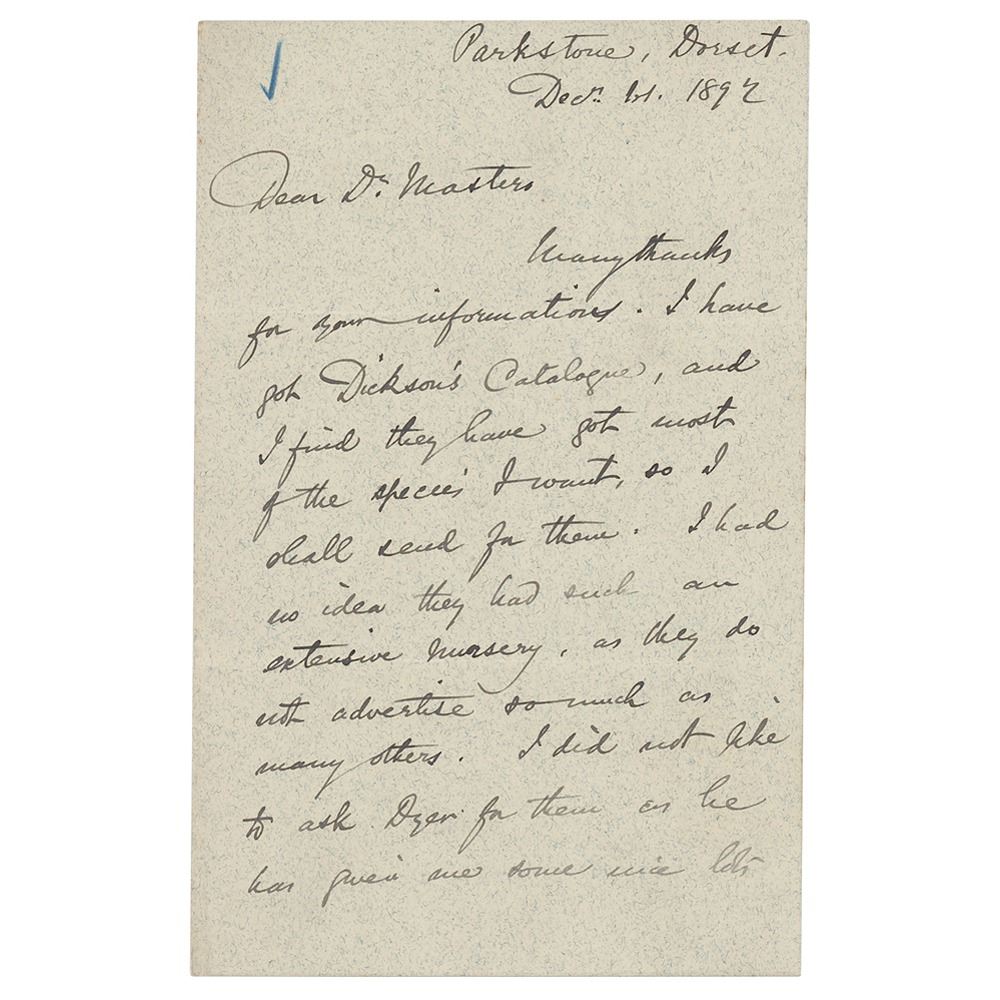 Parkstone, Dorset.
Decr. 1st. 1892
Dear Dr. Masters
Many thanks
for your informations. I have
got Dickson's Catalogue, and
I find they have got most
of the species I want, so I
shall send for them. I had
no idea they had such an
extensive nursery, as they do
not advertise so much as
many others. I did not like
to ask Dyer for them as he
has given me some nice lots